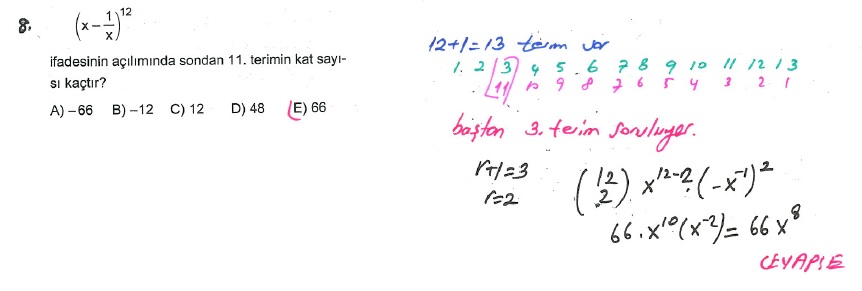 8. (x - 1/x)^12
ifadesinin açılımında sondan 11. terimin kat sayı-
sı kaçtır?
A) –66 B) –12 C) 12 D) 48 E) 66
12+1=13 terim var
1. 2 3 4 5 6 7 8 9 10 11 12 13
11 10 9 8 7 6 5 4 3 2 1
baştan 3. terim soruluyor.
r+1=3
r=2
(12 2) x^12-2 . (-x^-1)^2
66 . x^10 (x^-2) = 66 x^8
CEVAP: E